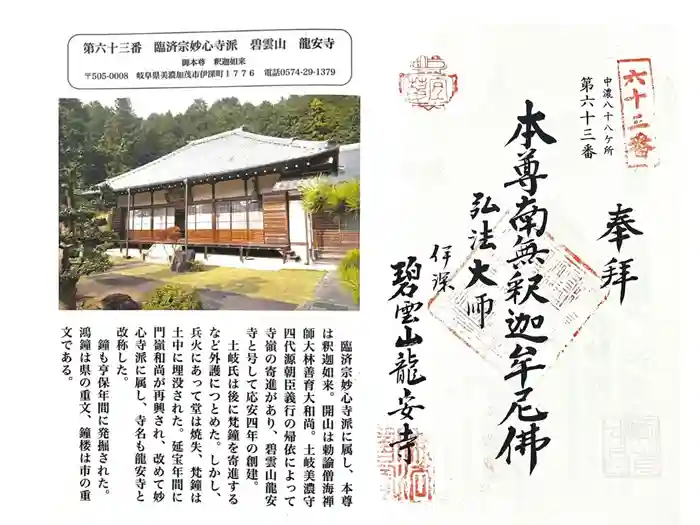 第六十三番 臨済宗妙心寺派 碧雲山 龍安寺
御本尊 釈迦如来
〒505-0008 岐阜県美濃加茂市伊深町1776 電話0574-29-1379
臨済宗妙心寺派に属し、本尊
は釈迦如来。開山は勅諭僧海禅
師大林善育大和尚。土岐美濃守
四代源朝臣義行の帰依によって
寺嶺の寄進があり、碧雲山龍安
寺と号して応安四年の創建。
土岐氏は後に梵鐘を寄進する
など外護につとめた。しかし、
兵火にあって堂は焼失、梵鐘は
土中に埋没された。延宝年間に
門嶺和尚が再興され、改めて妙
心寺派に属し、寺名も龍安寺と
改称した。
鐘も享保年間に発掘された。
鴻鐘は県の重文、鐘楼は市の重
文である。
六十三番
中濃八十八ケ所
第六十三番
奉拝
本尊南無釈迦牟尼佛
弘法大師
伊深
碧雲山龍安寺